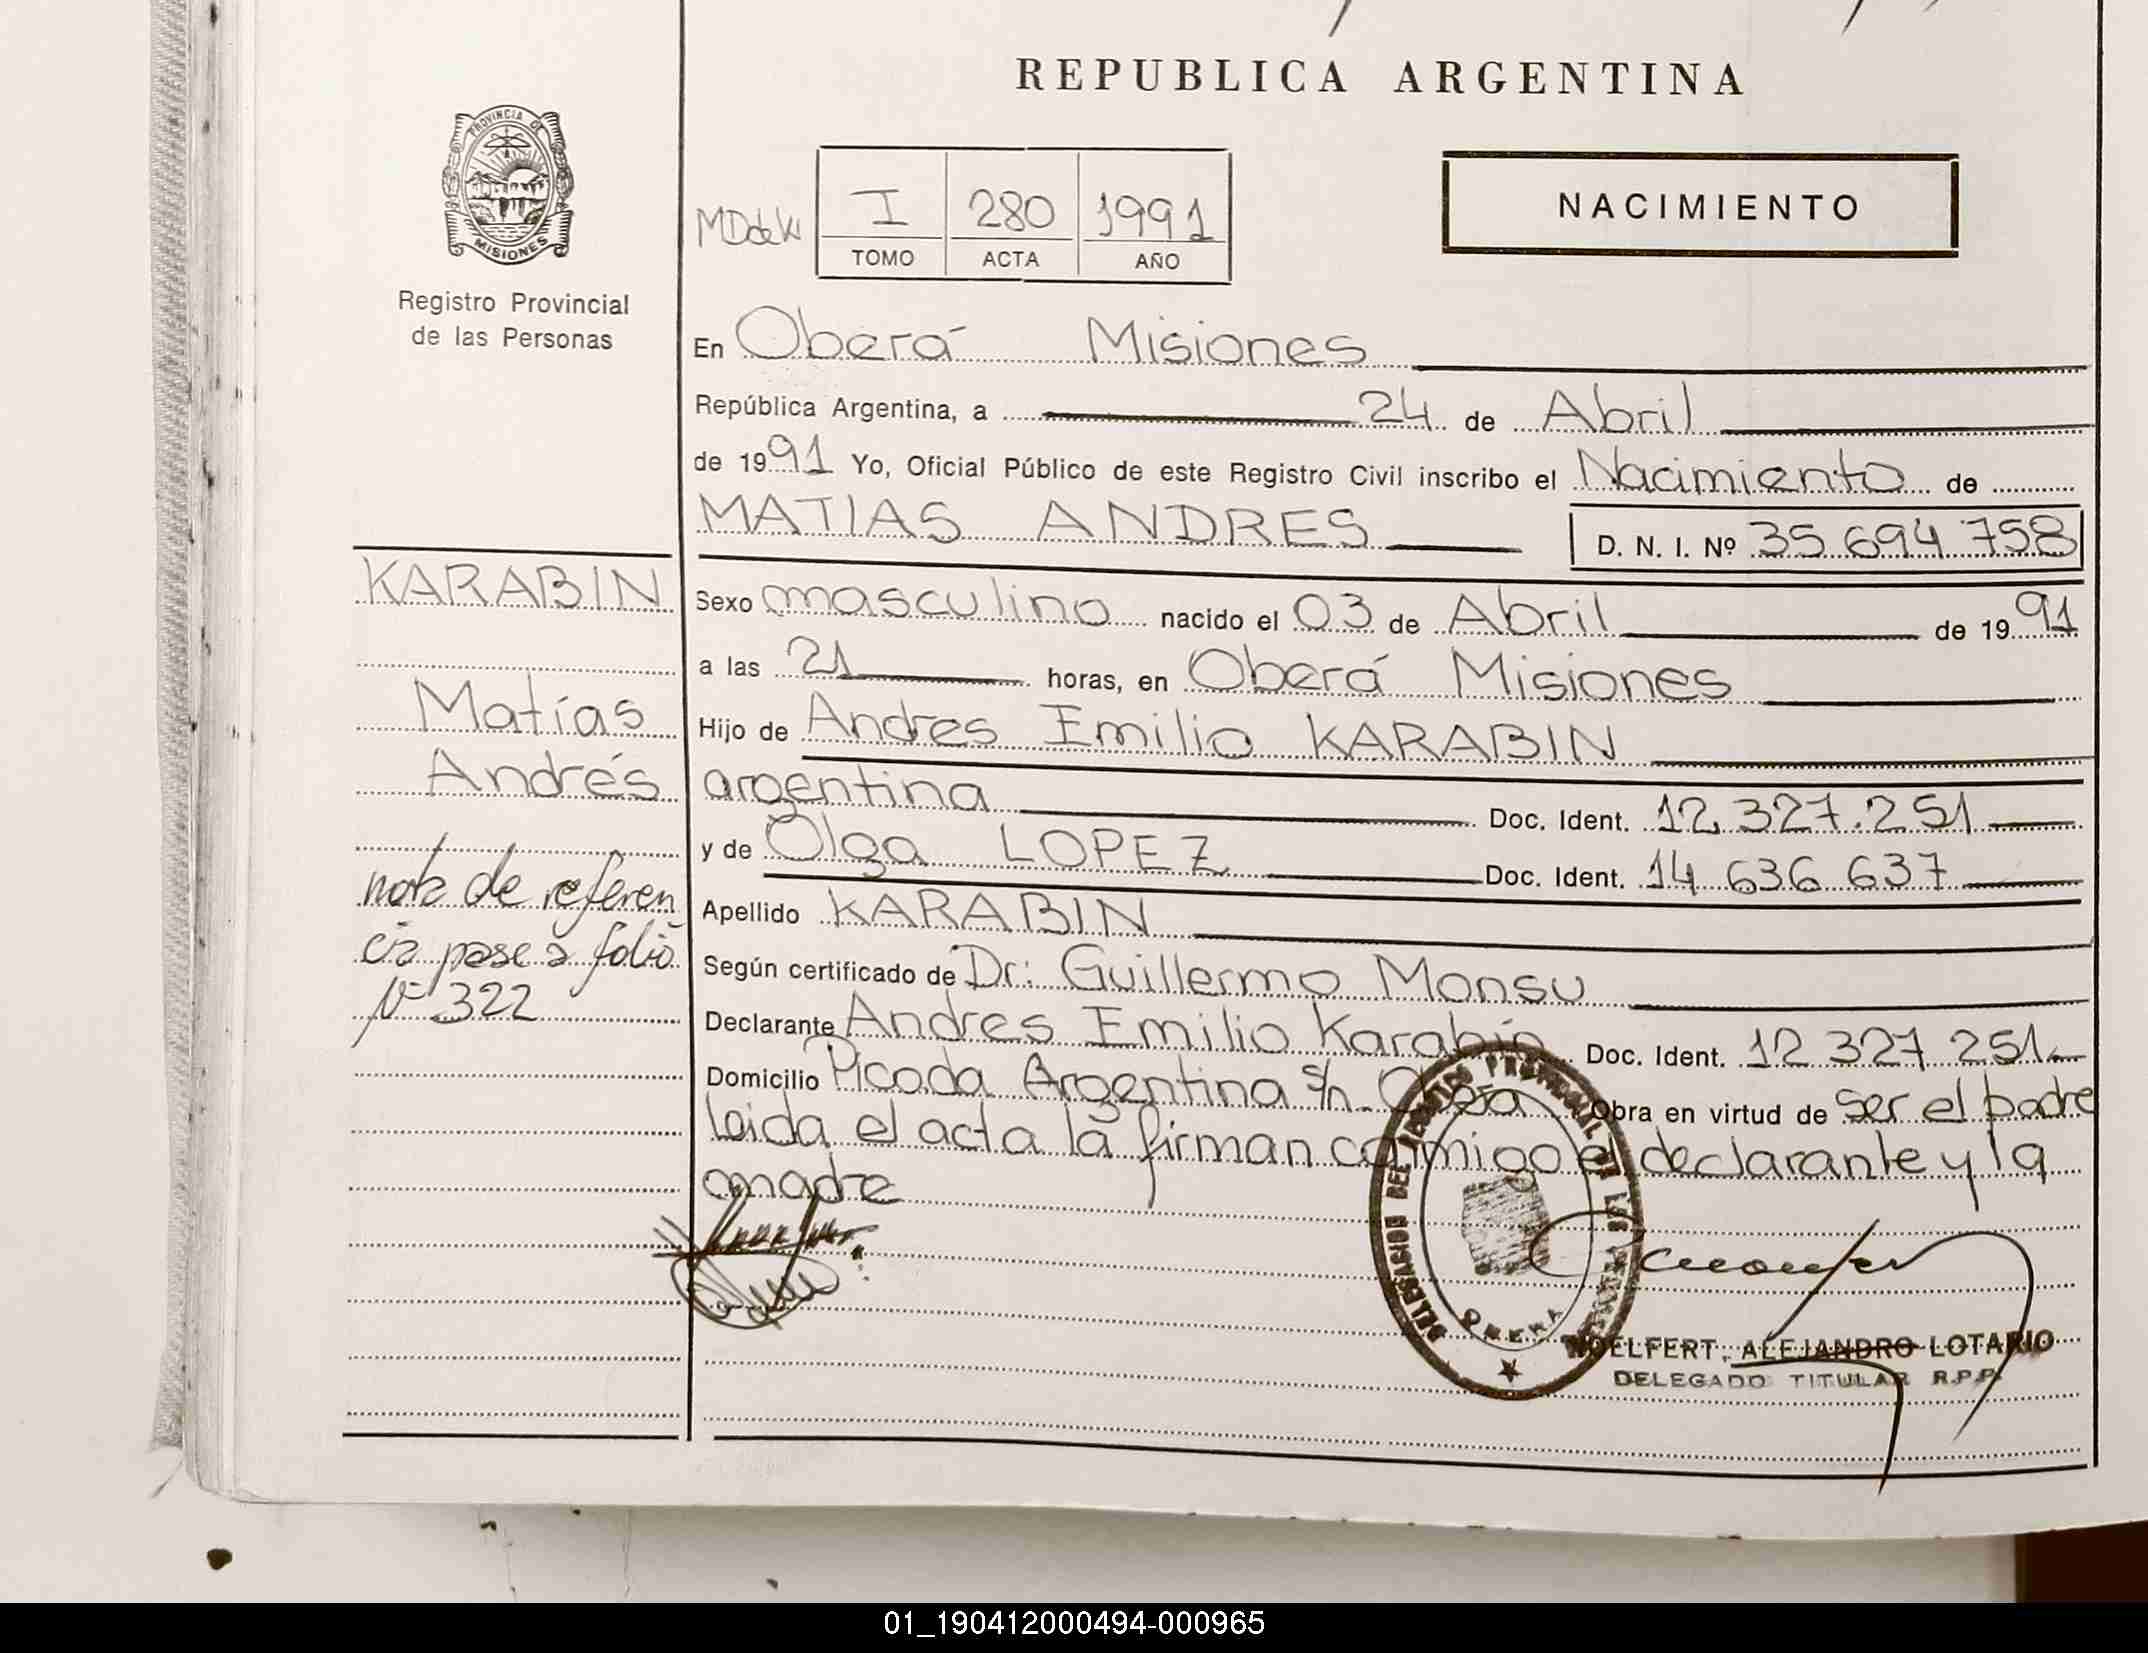 REPUBLICA ARGENTINA
PROVINCIA DE
MISIONES
Registro Provincial
de las Personas
I 280 1991
TOMO ACTA AÑO
NACIMIENTO
En Oberá Misiones
República Argentina, a 24 de Abril
de 1991 Yo, Oficial Público de este Registro Civil inscribo el Nacimiento de
MATIAS ANDRES D. N. I. Nº 35 694 758
KARABIN
Matías
Andrés
nota de referen
cia pase a folio
Nº 322
Sexo masculino nacido el 03 de Abril de 1991
a las 21 horas, en Oberá Misiones
Hijo de Andres Emilio KARABIN
argentina Doc. Ident. 12.327.251
y de Olga LOPEZ Doc. Ident. 14 636 637
Apellido KARABIN
Según certificado de Dr: Guillermo Monsu
Declarante Andres Emilio Karabin Doc. Ident. 12 327 251
Domicilio Picada Argentina s/n. Oberá Obra en virtud de ser el padre
leida el acta la firman conmigo el declarante y la
madre
DELEGACION DEL REGISTRO PROVINCIAL DE LAS PERSONAS
OBERA
WOELFERT, ALEJANDRO LOTARIO
DELEGADO TITULAR R.P.P.
01_190412000494-000965